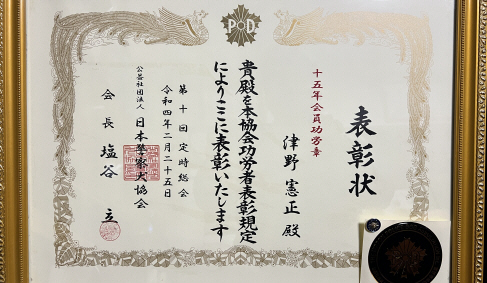 PD
表彰状
十五年会員功労章
津野憲正殿
貴殿を本協会功労者表彰規定
によりここに表彰いたします
第十回定時総会
令和四年二月二十五日
公益社団法人 日本警察犬協会
会長 塩谷 立